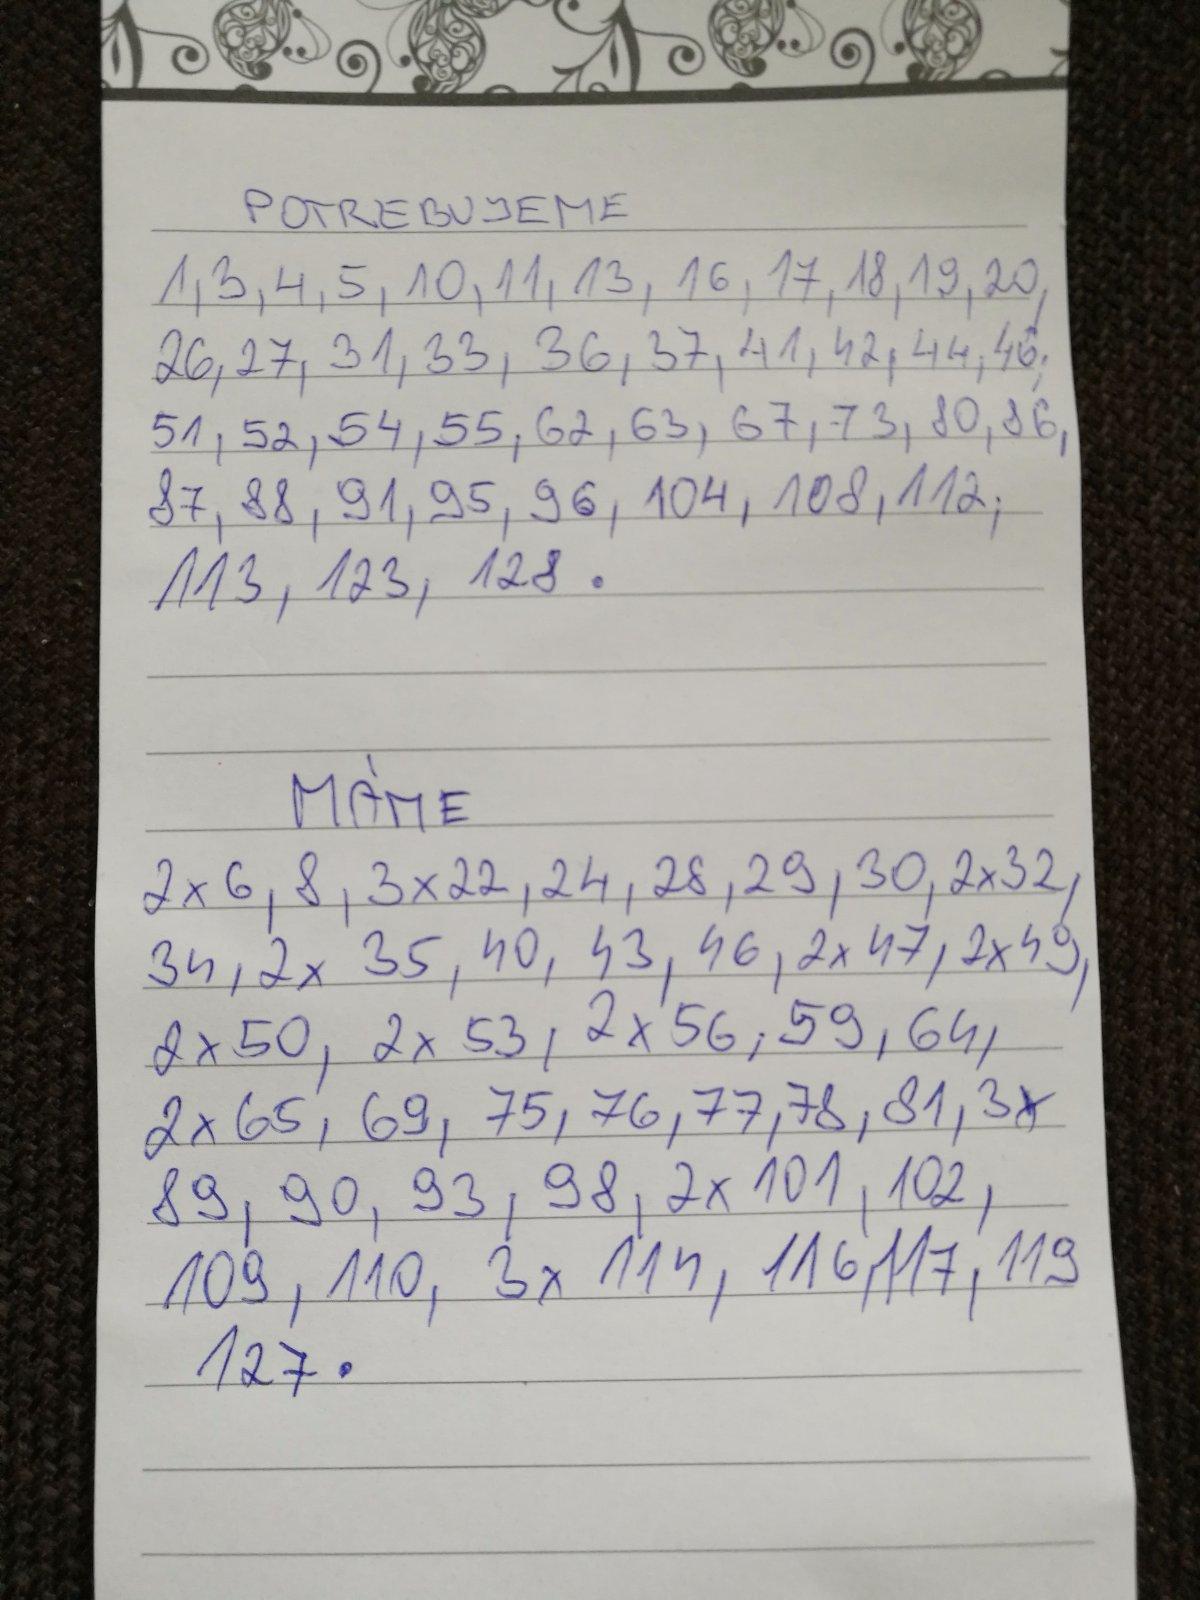 POTREBUJEME
1, 3, 4, 5, 10, 11, 13, 16, 17, 18, 19, 20,
26, 27, 31, 33, 36, 37, 41, 42, 44, 46,
51, 52, 54, 55, 62, 63, 67, 73, 80, 86,
87, 88, 91, 95, 96, 104, 108, 112,
113, 123, 128.
MÁME
2x6, 8, 3x22, 24, 28, 29, 30, 2x32,
34, 2x 35, 40, 43, 46, 2x47, 2x49,
2x50, 2x 53, 2x56, 59, 64,
2x65, 69, 75, 76, 77, 78, 81, 3x
89, 90, 93, 98, 2x 101, 102,
109, 110, 3x 114, 116, 117, 119
127.